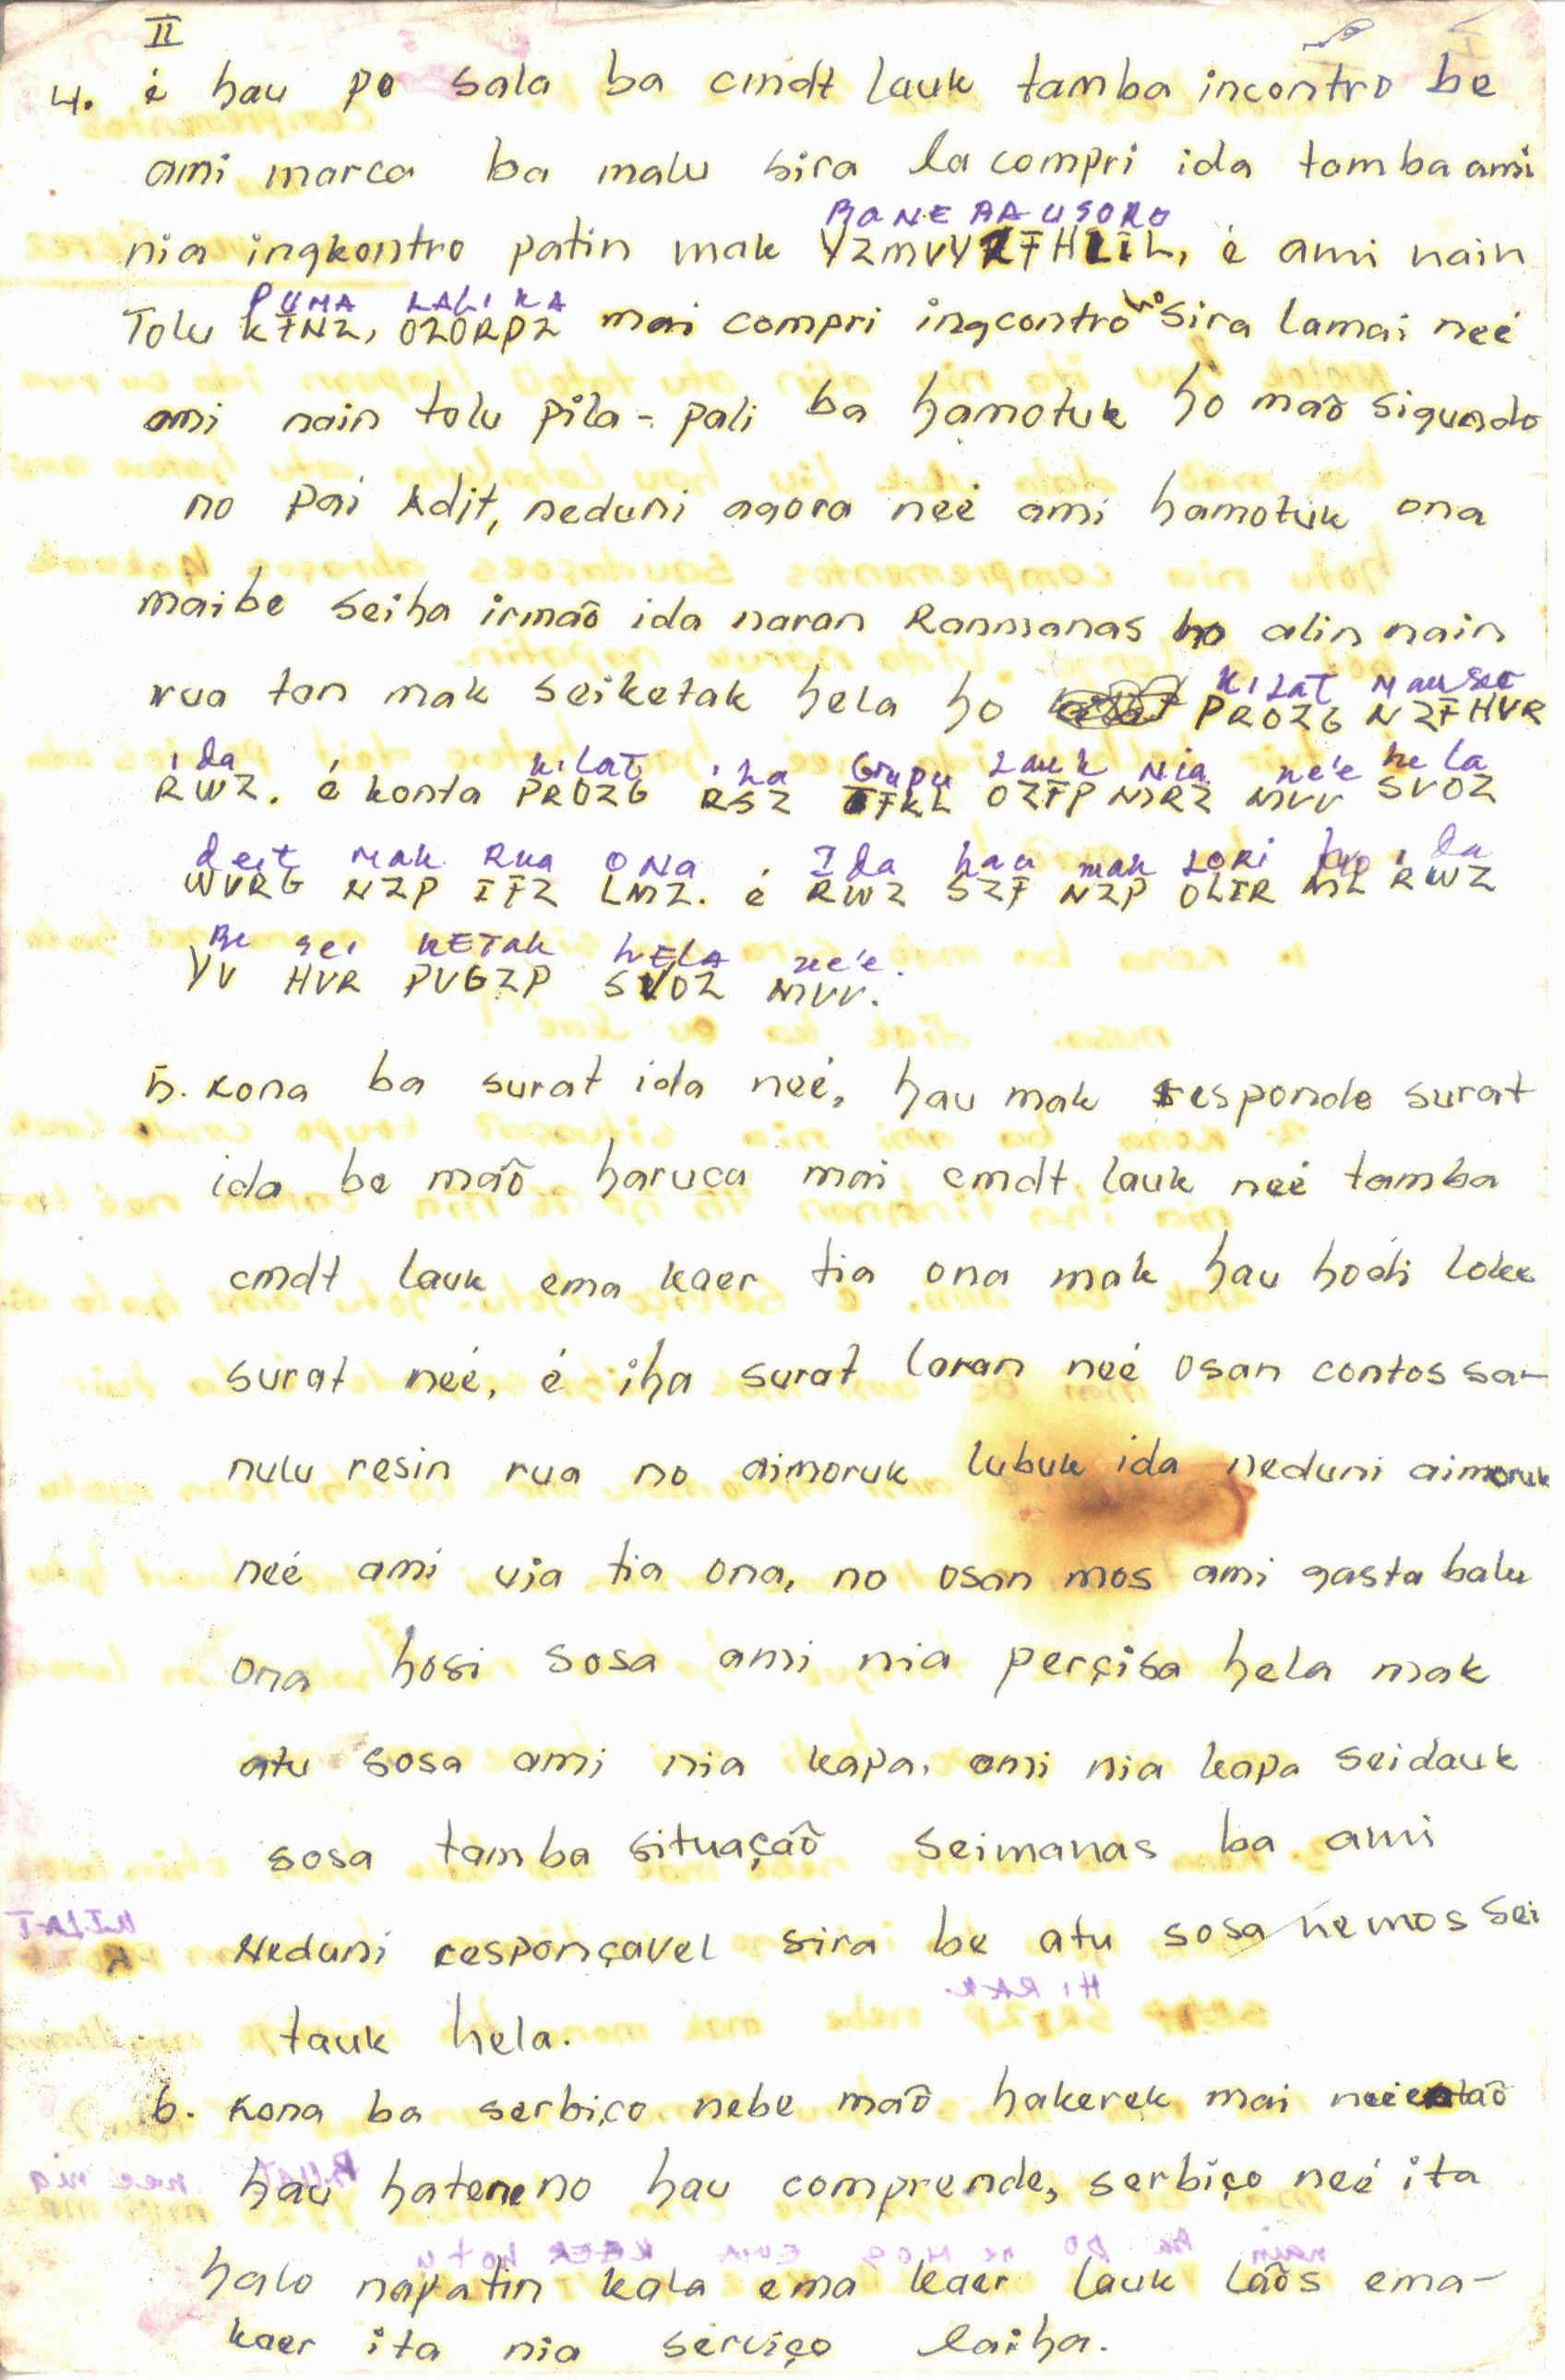 II
4. é hau po sala ba cmdt lauk tamba incontro be
ami marca ba malu sira la compri ida tamba ami
BANE AA USORO
nia ingkontro patin mak YZMVYZFHLIL, é ami nain
PUMA LALIKA
Tolu KFNZ, OZORPZ mai compri ingcontro ho sira lamai neé
ami nain tolu pila-pali ba hamotuk ho maõ sigundo
no pai Adit, neduni agora neé ami hamotuk ona
maibe seiha irmaõ ida naran Ranmanas ho alin nain
KILAT Mauser
rua tan mak seiketak hela ho PROZG NZFHVR
ida kilat iha Grupu Lauk Nia ne'e hela
RWZ. é konta PROZG RSZ TFKL OZFP MRZ MVV SVOZ
deit mak Rua ONA Ida hau mak LORI no ida
WVRG NZP IFZ LMZ. é RWZ SZF NZP OLIR ML RWZ
Be sei KETAK hELA ne'e.
YV HVR PVGZP SVOZ MVV.
5. kona ba surat ida neé, hau mak responde surat
ida be maõ haruca mai cmdt lauk neé tamba
cmdt lauk ema kaer tia ona mak hau hodi loke
surat neé, é iha surat laran neé osan contos sa-
nulu resin rua no aimoruk lubuk ida neduni aimoruk
neé ami uja tia ona, no osan mos ami gasta balu
ona hosi sosa ami nia perçisa hela mak
atu sosa ami nia kapa. ami nia kapa seidauk
sosa tamba situaçaõ seimanas ba ami
Neduni responçavel sira be atu sosa nemos sei
tauk hela.
6. kona ba serbiço nebe maõ hakerek mai neé
hau hatene no hau comprende, serbiço neé ita
halo napatin kala ema kaer lauk laõs ema-
kaer ita nia serviço laiha.